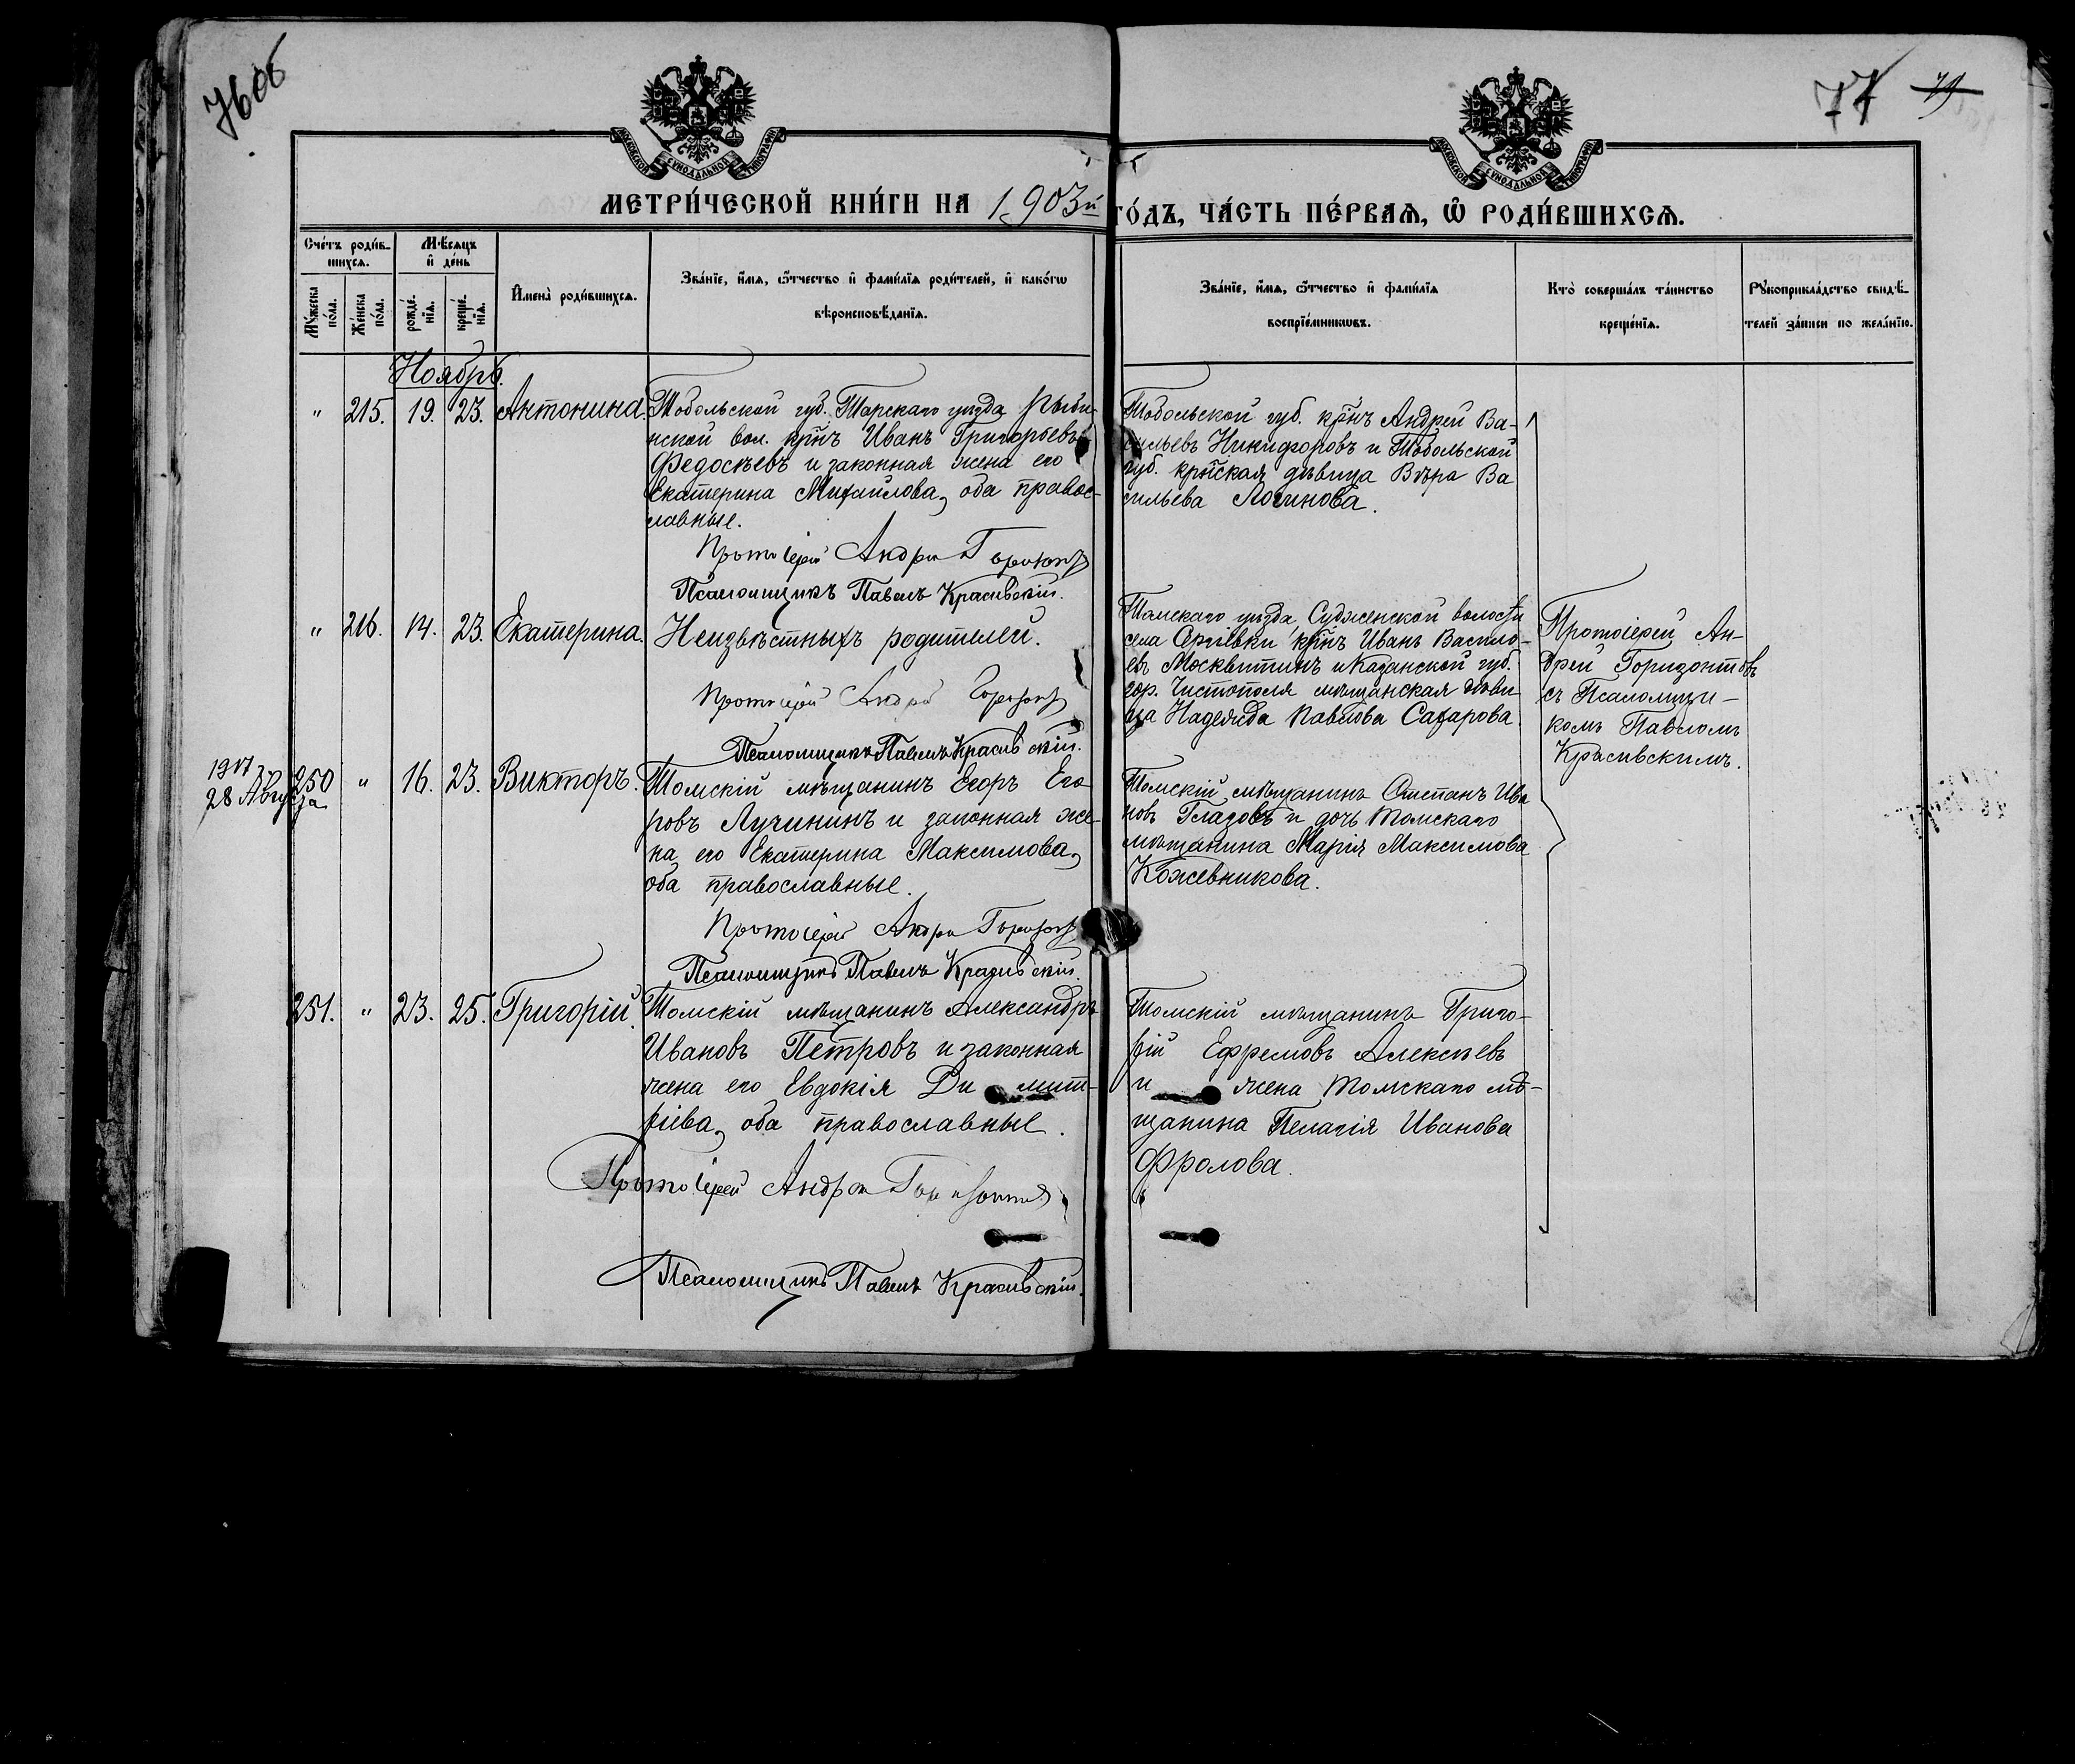 77 79
МОСКОВСКОЙ СУНОДАЛЬНОЙ ТИПОГРАФІИ
МОСКОВСКОЙ СУНОДАЛЬНОЙ ТИПОГРАФІИ
МЕТРИ́ЧЕСКОЙ КНИ́ГИ НА 1903й ГО́ДЪ, ЧА́СТЬ ПЕ́РВАѦ, Ѽ РОДИ́ВШИХСѦ.
Сче́тъ роди́в-
шихсѧ.
Мꙋ́жеска по́ла.
Же́нска по́ла.
Мѣ́сѧцъ и҆ де́нь
рожде́-нїѧ.
креще́-нїѧ.
И҆мена̀ роди́вшихсѧ.
Зва́нїе, и҆́мѧ, ѻ҆́тчество и҆ фами́лїѧ роди́телей, и҆ како́гѡ
вѣроисповѣ́данїѧ.
Зва́нїе, и҆́мѧ, ѻ҆́тчество и҆ фами́лїѧ
воспрїе́мникѡвъ.
Кто̀ соверша́лъ та́инство
креще́нїѧ.
Рꙋкоприкла́дство свидѣ́-
телей за́писи по жела́нїю.
Ноябрь.
" 215. 19. 23. Антонина.
Тобольской губ. Тарскаго уѣзда Рыби-
нской вол. крнъ Иванъ Григорьевъ
Федосѣевъ и законная жена его
Екатерина Михайлова, оба правос-
лавные.
Протоіерей Андрей Горизонтовъ
Псаломщикъ Павелъ Красивскій.
Тобольской губ. крнъ Андрей Ва-
сильевъ Никифоровъ и Тобольской
губ. крнская дѣвица Вѣра Ва
сильева Логинова.
" 216. 14. 23. Екатерина.
Неизвѣстныхъ родителей.
Протоіерей Андрей Горизонтовъ
Псаломщикъ Павелъ Красивскій.
Томскаго уѣзда Судженской волости
села Сергіевки крнъ Иванъ Василь-
евъ Москвитинъ и Казанской губ.
гор. Чистополя мѣщанская дѣви
ца Надежда Павлова Сахарова.
Протоіерей Ан-
дрей Горизонтовъ
съ Псаломщи-
комъ Павломъ
Красивскимъ.
28 Августа
250 " 16. 23. Викторъ.
Томскій мѣщанинъ Егоръ Его
ровъ Лучининъ и законная же-
на его Екатерина Максимова,
оба православные.
Протоіерей Андрей Горизонтовъ
Псаломщикъ Павелъ Красивскій.
Томскій мѣщанинъ Степанъ Ива
новъ Глазовъ и дочь Томскаго
мѣщанина Марія Максимова
Кожевникова.
251. " 23. 25. Григорій.
Томскій мѣщанинъ Александръ
Ивановъ Петровъ и законная
жена его Евдокія Димит-
ріева, оба православные.
Протоіерей Андрей Горизонтовъ
Псаломщикъ Павелъ Красивскій.
Томскій мѣщанинъ Григо-
рій Ефремовъ Алексѣевъ
и жена Томскаго мѣ-
щанина Пелагія Иванова
Фролова.